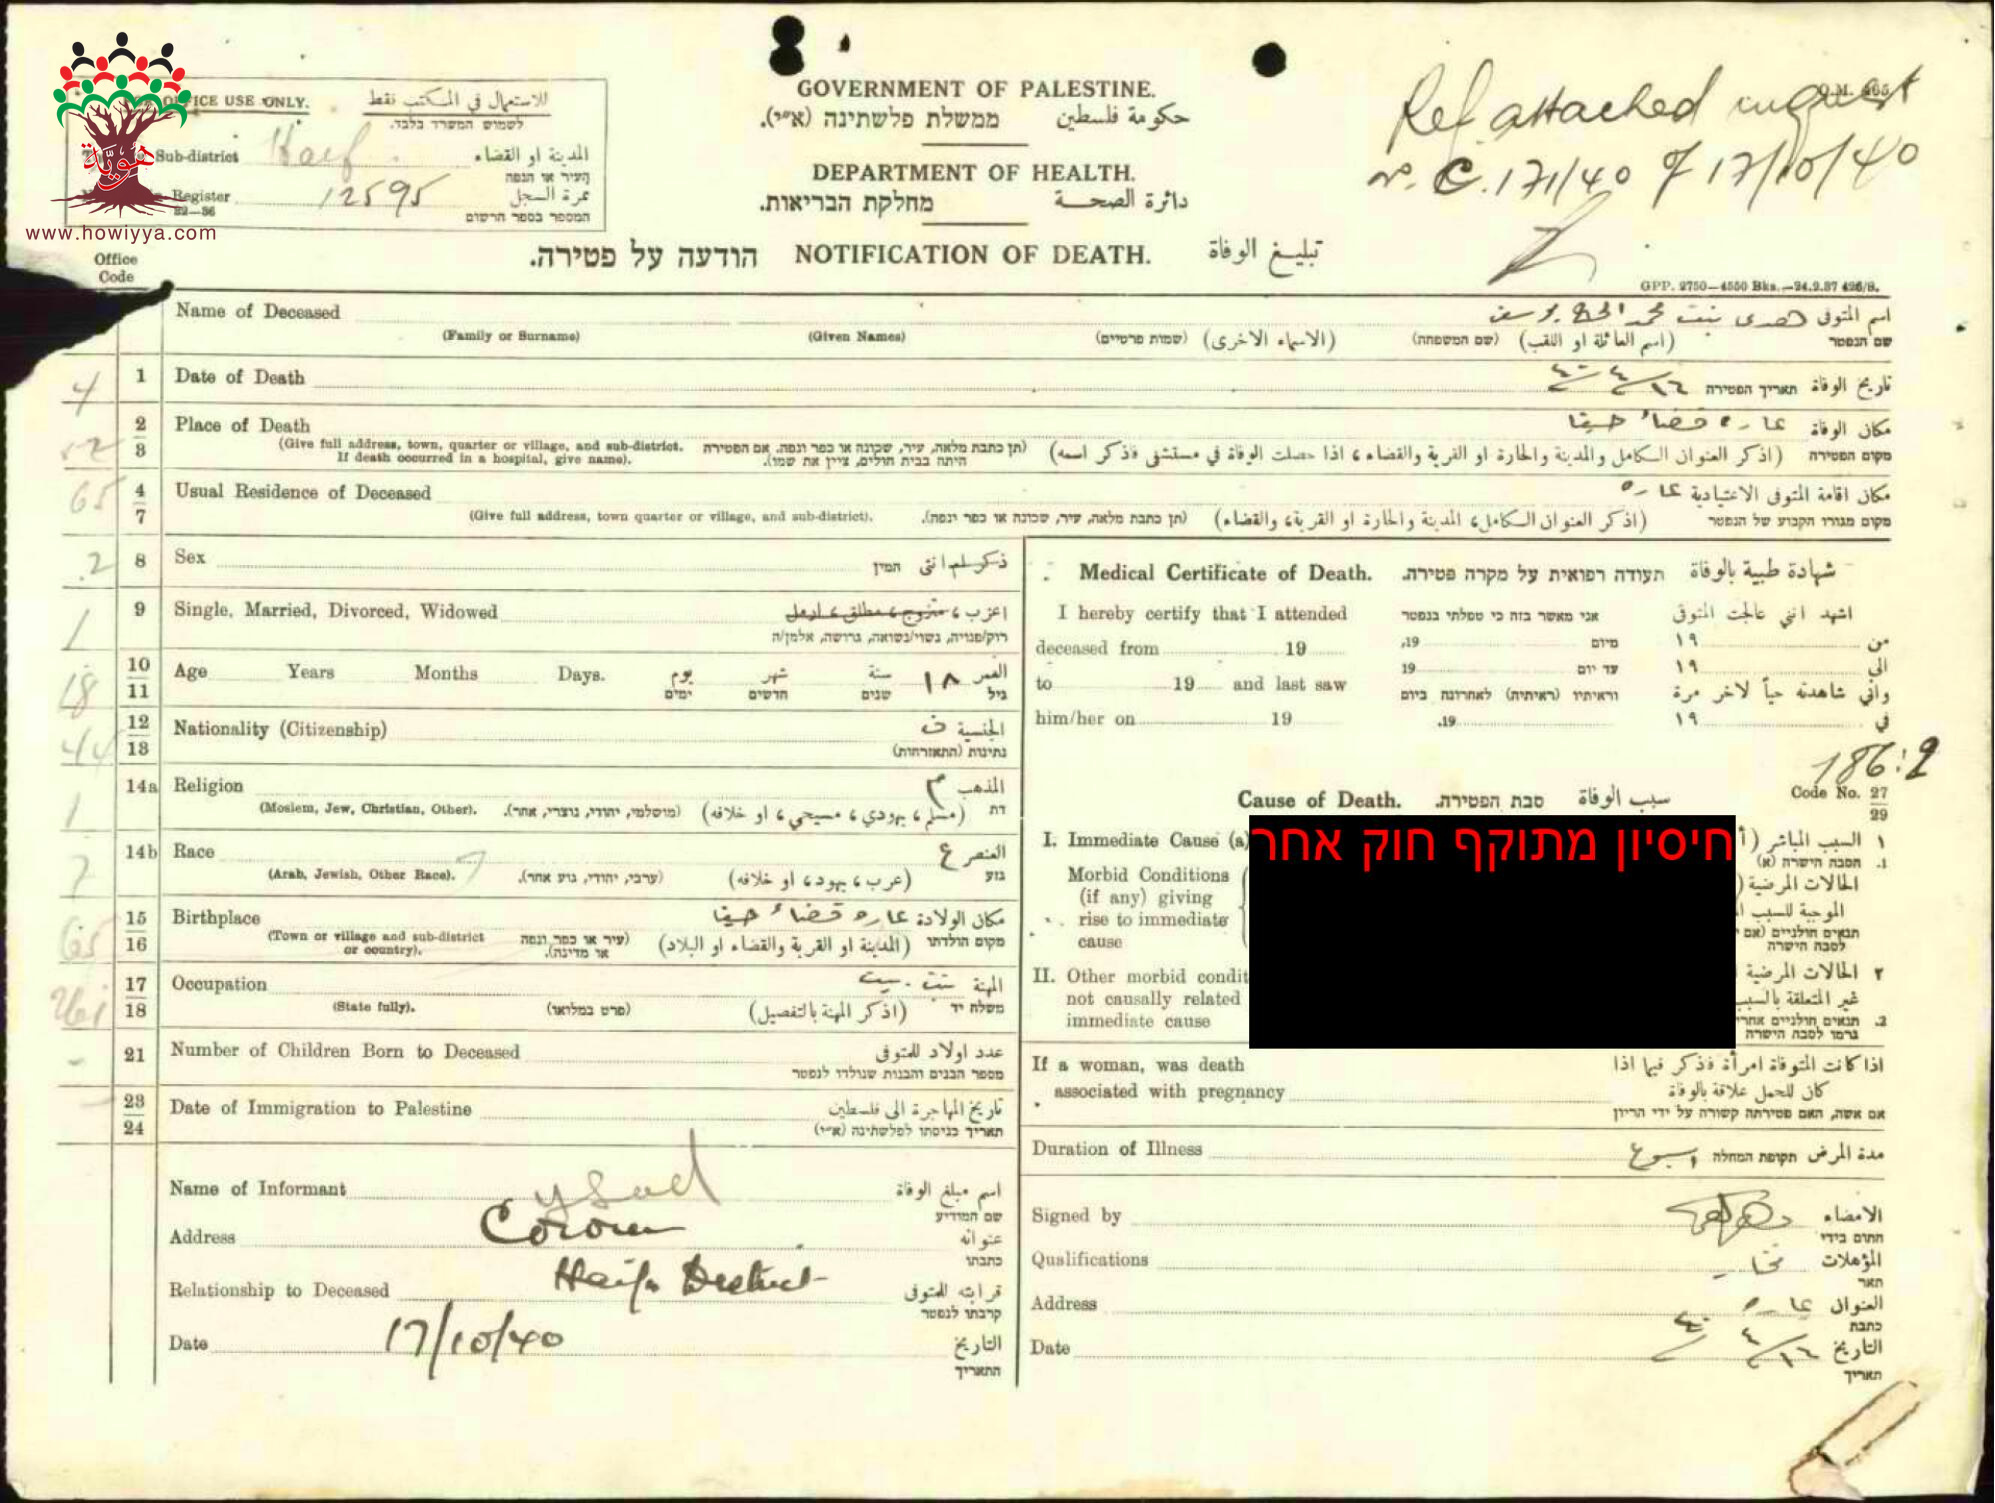 هوية
www.howiyya.com
OFFICE USE ONLY. للاستعمال في المكتب فقط
לשמוש המשרד בלבד.
Sub-district Haifa المدينة او القضاء
העיר או הנפה
Register 12595 نمرة السجل
22—36 המספר בספר הרשום
GOVERNMENT OF PALESTINE.
ממשלת פלשתינה (א״י). حكومة فلسطين
DEPARTMENT OF HEALTH.
מחלקת הבריאות. دائرة الصحة
Ref attached inquest
No. C. 171/40 of 17/10/40
הודעה על פטירה. NOTIFICATION OF DEATH. تبليغ الوفاة
GPP. 2750—4550 Bks.—24.2.37 426/S.
Office
Code
Name of Deceased اسم المتوفى بنت محمد الحاج يوسف
שם הנפטר
(Family or Surname) (Given Names) (שמות פרטיים) (الاسماء الاخرى) (שם המשפחה) (اسم العائلة او اللقب)
4 1 Date of Death تاريخ الوفاة תאריך הפטירה ١٦/٤/٤٠
2 Place of Death مكان الوفاة عاره قضاء حيفا
3 (Give full address, town, quarter or village, and sub-district. If death occurred in a hospital, give name).
(תן כתבת מלאה, עיר, שכונה או כפר ונפה. אם הפטירה היתה בבית חולים, ציין את שמו).
מקום הפטירה (اذكر العنوان الكامل والمدينة والحارة او القرية والقضاء، اذا حصلت الوفاة في مستشفى فاذكر اسمه)
65 4 Usual Residence of Deceased مكان اقامة المتوفى الاعتيادية عاره
7 (Give full address, town quarter or village, and sub-district). (תן כתבת מלאה, עיר, שכונה או כפר ונפה). (اذكر العنوان الكامل، المدينة والحارة او القرية، والقضاء) מקום מגורו הקבוע של הנפטר
2 8 Sex המין ذكر ام انثى
1 9 Single, Married, Divorced, Widowed اعزب، متزوج، مطلق، ارمل
רוק/פנויה, נשוי/נשואה, גרושה, אלמן/ה
18 10 Age Years Months Days. يوم شهر سنة ١٨ العمر
11 ימים חדשים שנים גיל
44 12 Nationality (Citizenship) الجنسية ف
13 נתינות (התאזרחות)
1 14a Religion المذهب م
(Moslem, Jew, Christian, Other). (מוסלמי, יהודי, נוצרי, אחר). (مسلم، يهودي، مسيحي، او خلافه) דת
7 14b Race العنصر ع
(Arab, Jewish, Other Race). (ערבי, יהודי, גזע אחר). (عرب، يهود، او خلافه) גזע
65 15 Birthplace مكان الولادة عاره قضاء حيفا
16 (Town or village and sub-district or country). (עיר או כפר ונפה או מדינה). (المدينة او القرية والقضاء او البلاد) מקום הולדתו
17 Occupation المهنة بنت بيت
18 (State fully). (פרט במלואו) (اذكر المهنة بالتفصيل) משלח יד
21 Number of Children Born to Deceased عدد اولاد المتوفى
מספר הבנים והבנות שנולדו לנפטר
23 Date of Immigration to Palestine تاريخ المهاجرة الى فلسطين
24 תאריך כניסתו לפלשתינה (א״י)
Name of Informant اسم مبلغ الوفاة
שם המודיע
Address Coroner عنوانه
כתבתו
Relationship to Deceased Haifa District قرابته للمتوفى
קרבתו לנפטר
Date 17/10/40 التاريخ
התאריך
Medical Certificate of Death. תעודה רפואית על מקרה פטירה. شهادة طبية بالوفاة
I hereby certify that I attended אני מאשר בזה כי טפלתי בנפטר اشهد انني عالجت المتوفى
deceased from 19 מיום 19, من ١٩
to 19 and last saw עד יום 19 الى ١٩
וראיתיו (ראיתיה) לאחרונה ביום واني شاهدته حياً لاخر مرة
him/her on 19 19. في ١٩
186:2
Cause of Death. סבת הפטירה. سبب الوفاة Code No. 27
29
חיסיון מתוקף חוק אחר
I. Immediate Cause (a) ١ السبب المباشر (أ
1. הסבה הישרה (א)
Morbid Conditions الحالات المرضية
(if any) giving الموجبة للسبب
rise to immediate תנאים חולניים (אם
cause לסבה הישרה
II. Other morbid condit ٢ الحالات المرضية
not causally related غير المتعلقة بالسبب
immediate cause 2. תנאים חולניים אחרי
גרמו לסבה הישרה
If a woman, was death اذا كانت المتوفاة امرأة فذكر فيما اذا
associated with pregnancy كان للحمل علاقة بالوفاة
אם אשה, האם פטירתה קשורה על ידי הריון
Duration of Illness مدة المرض תקופת המחלה اسبوع
Signed by الامضاء
חתום בידי
Qualifications المؤهلات مختار
תאר
Address العنوان عاره
כתבת
Date التاريخ ١٦/٤/٤٠
תאריך